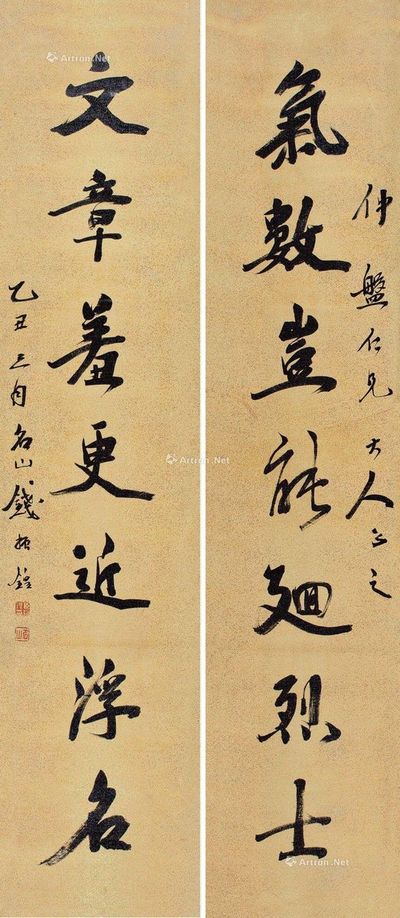 仲盤仁兄大人正之
氣數豈能迴烈士
文章羞更近浮名
乙丑三月名山錢振鍠
Artron.Net
Artron.Net
Artron.Net
Artron.Net